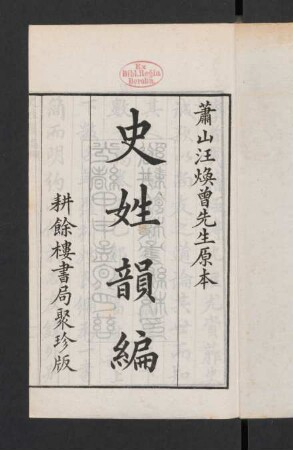 蕭山汪煥曾先生原本
史姓韻編
耕餘樓書局聚珍版
Ex
Bibl. Regia
Berolin.